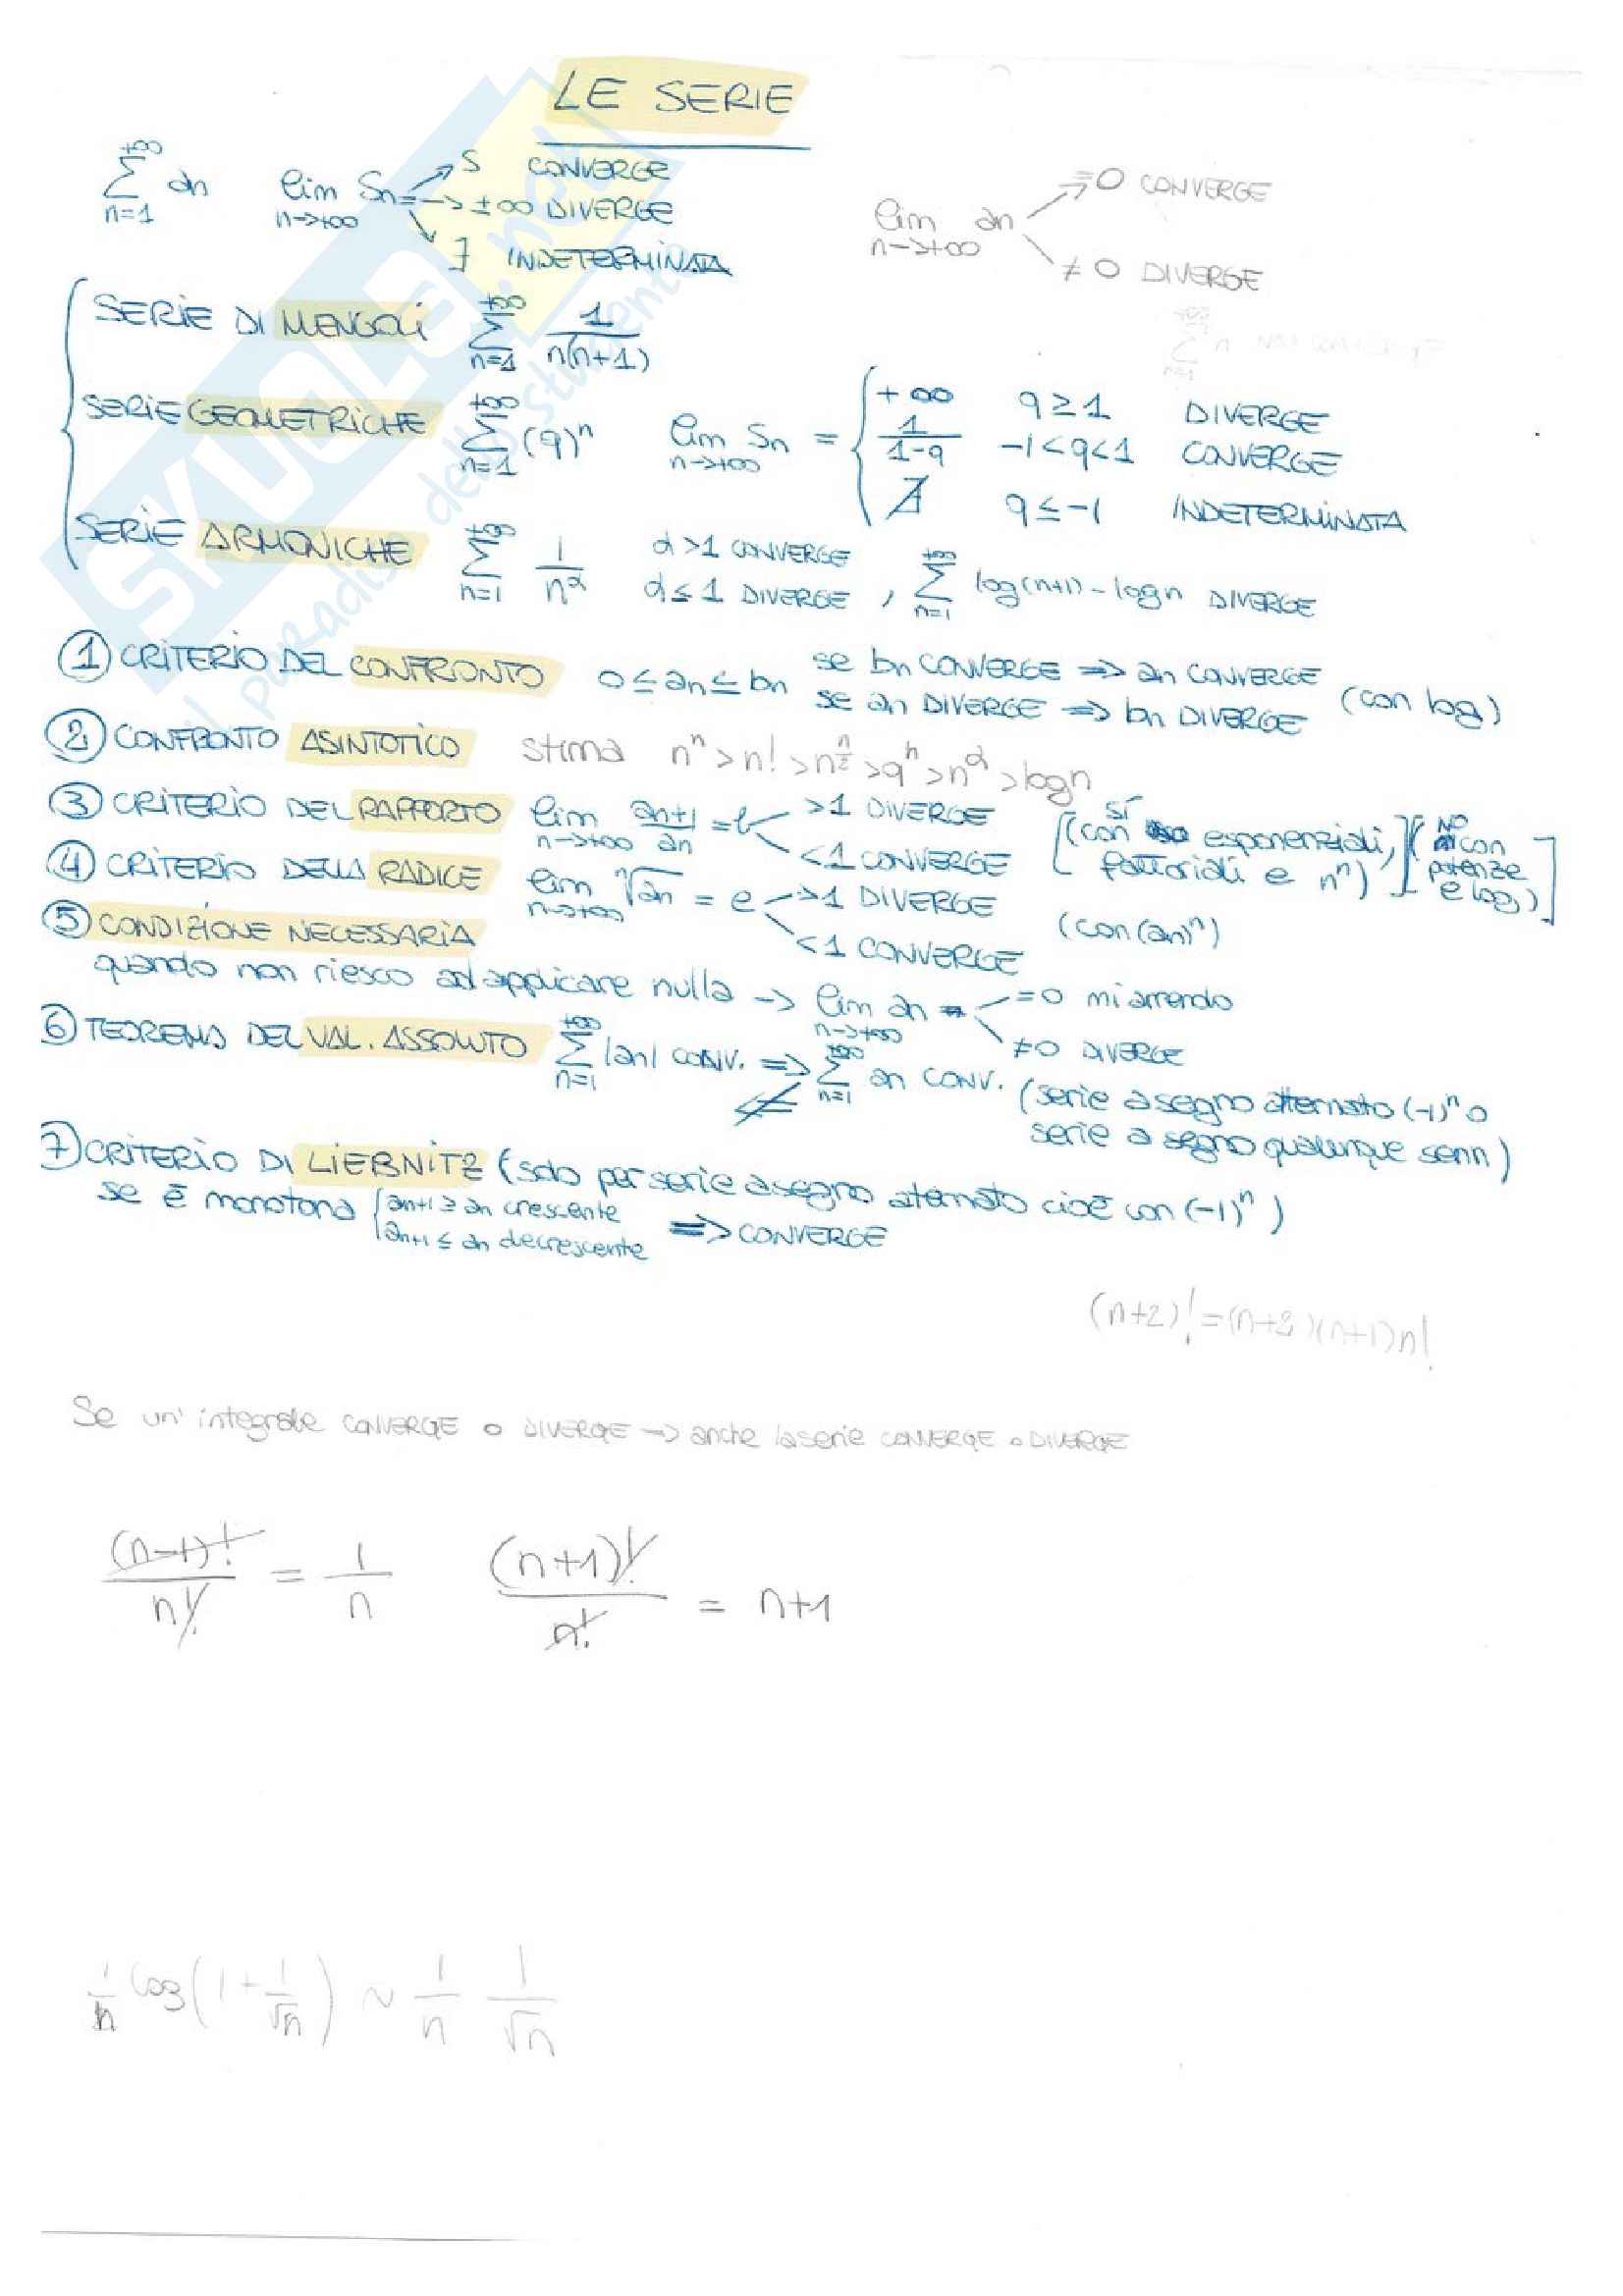 LE SERIE
+∞ Σ n=1 an lim n->+∞ Sn = S CONVERGE
-> ±∞ DIVERGE
∃ INDETERMINATA
lim n->+∞ an =0 CONVERGE
≠0 DIVERGE
SERIE DI MENGOLI +∞ Σ n=1 1/n(n+1)
SERIE GEOMETRICHE +∞ Σ n=1 (q)^n lim n->+∞ Sn = { +∞ q≥1 DIVERGE
1/1-q -1<q<1 CONVERGE
∄ q≤-1 INDETERMINATA
SERIE ARMONICHE +∞ Σ n=1 1/n^α α>1 CONVERGE
α≤1 DIVERGE , +∞ Σ n=1 log(n+1)-logn DIVERGE
① CRITERIO DEL CONFRONTO 0≤an≤bn se bn CONVERGE => an CONVERGE
se an DIVERGE => bn DIVERGE (con log)
② CONFRONTO ASINTOTICO stima n^n>n!>n^(n/2)>q^n>n^α>logn
③ CRITERIO DEL RAPPORTO lim n->+∞ an+1/an = l >1 DIVERGE
<1 CONVERGE [(SÍ con esponenziali, fattoriali e n^n)] (NO con potenze e log)]
④ CRITERIO DELLA RADICE lim n->+∞ ⁿ√an = e >1 DIVERGE
<1 CONVERGE (con (an)^n)
⑤ CONDIZIONE NECESSARIA
quando non riesco ad applicare nulla -> lim n->+∞ an = =0 mi arrendo
≠0 DIVERGE
⑥ TEOREMA DEL VAL. ASSOLUTO +∞ Σ n=1 |an| CONV. => +∞ Σ n=1 an CONV. (serie a segno alternato (-1)^n o
serie a segno qualunque senn)
⑦ CRITERIO DI LIEBNITZ (solo per serie a segno alternato cioè con (-1)^n)
se è monotona { an+1≥an crescente
an+1≤an decrescente => CONVERGE
(n+2)!=(n+2)(n+1)n!
Se un' integrale CONVERGE o DIVERGE -> anche la serie CONVERGE o DIVERGE
(n-1)!/n! = 1/n (n+1)!/n! = n+1
1/n log(1+1/√n) ~ 1/n 1/√n
SKUOLA.net
il paradiso dello studente